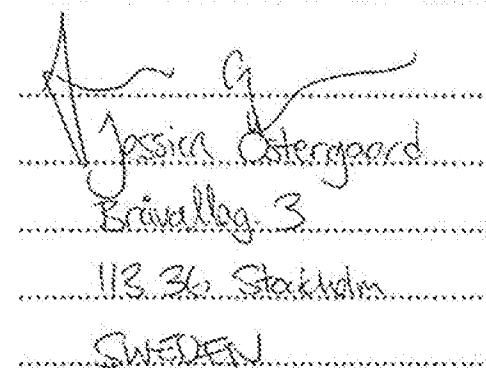 Jessica Östergaard
Bråvallag. 3
113 36 Stockholm
SWEDEN